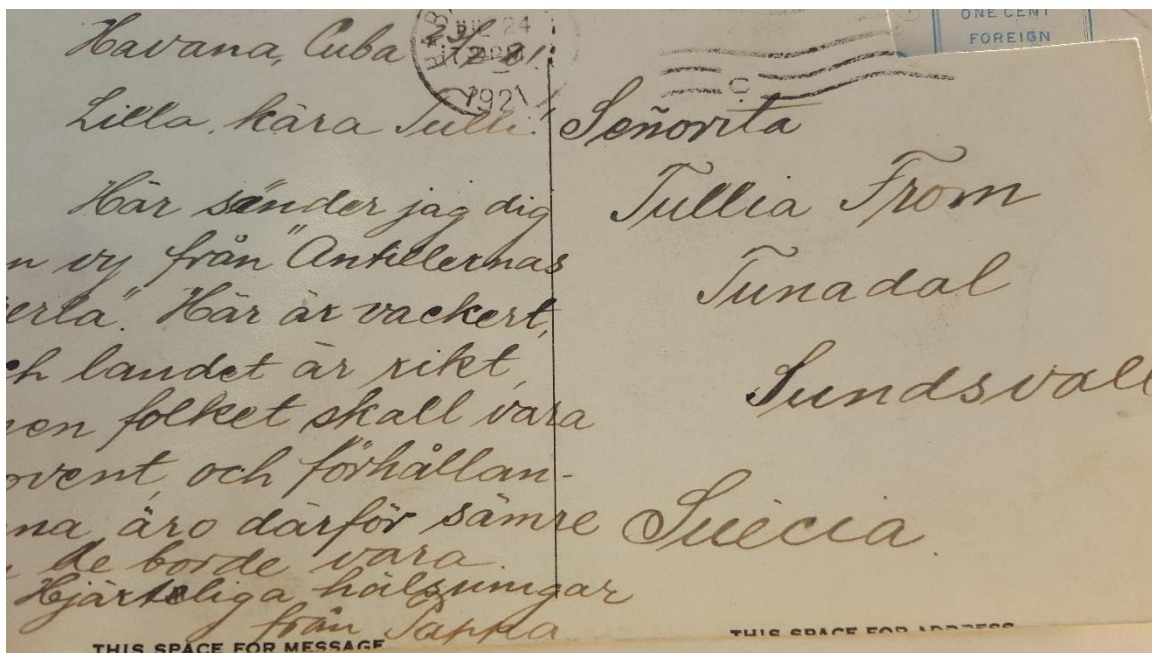 Havana, Cuba
Lilla, kära Tulli!
Här sänder jag dig
n vy från "Antillernas
erla". Här är vackert,
ch landet är rikt,
en folket skall vara
ovent, och förhållan-
na äro därför sämre
de borde vara.
Hjärteliga hälsningar
från Pappa
THIS SPACE FOR MESSAGE
JUL 24
1921
ONE CENT
FOREIGN
Señorita
Tullia From
Tunadal
Sundsvall
Suècia.
THIS SPACE FOR ADDRESS